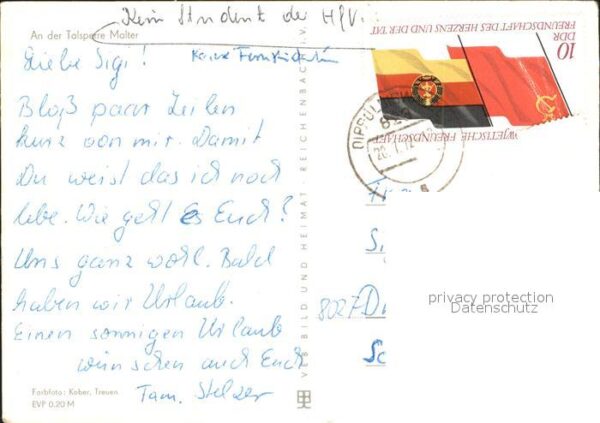 Kein Student der HfV.
An der Talsperre Malter
Keine Funktionärin
Liebe Sigi!
Bloß paar Zeilen
kurz von mir. Damit
Du weist das ich noch
lebe. Wie geht es Euch?
Uns ganz wohl. Bald
haben wir Urlaub.
Einen sonnigen Urlaub
wünschen auch Euch
Fam. Stelzer
Farbfoto: Kober, Treuen
EVP 0.20 M
VEB BILD UND HEIMAT · REICHENBACH I. V.
10
DDR
FREUNDSCHAFT DES HERZENS UND DER TAT
WJETISCHE FREUNDSCHAFT
20. 7. 72
8027
privacy protection
Datenschutz